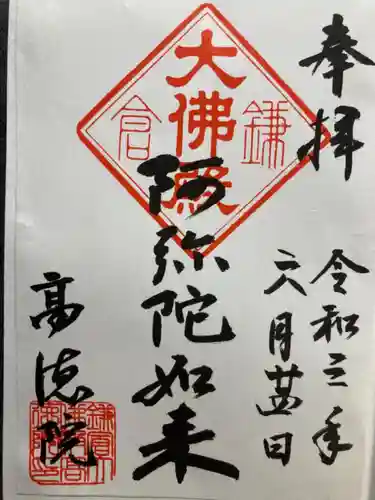 奉拝
令和三年
六月廿四日
大佛殿
鎌倉
阿弥陀如来
高徳院